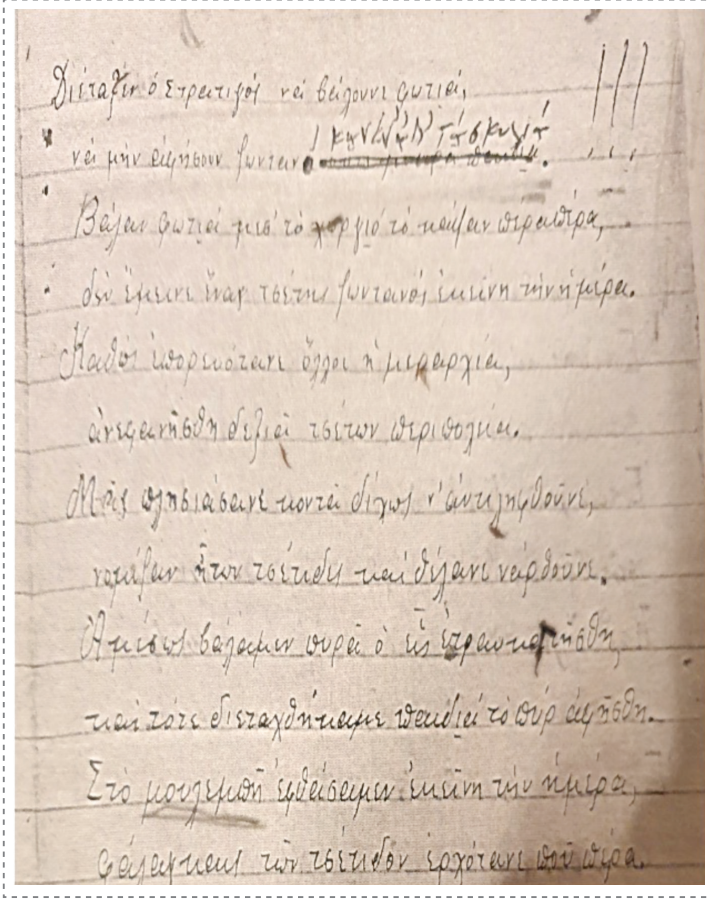 Διέταξεν ὁ Στρατιγός νά βάλουνε φωτιά,
νά μήν ἀφήσουν ζωντανό κανένα
Βάλαν φωτιά μεσ' τό χοργιό τό καῦσαν πέρα πέρα,
δέν ἔμεινε ἕνας τσέτης ζωντανός ἐκείνη τήν ἡμέρα.
Καθώς ἐπορευότανε ὅλλοι ἡ μεραρχία,
ἀνεφανήσθη δεξιά τσέτων περιπολεία.
Μᾶς πλησιάσανε κοντά δίχως ν' ἀντιληφθοῦνε,
νομίζαν ἦτων τσέτιδες καί θέλανε νάρθοῦνε.
Ἀμέσως βάλαμεν πυρά ὁ εἷς ἐτραυματήσθη,
καί τότε διεταχθήκαμε παιδιά τό πῦρ ἀφήσθη.
Στό μουλεμπῆ ἐφθάσαμεν ἐκείνη τήν ἡμέρα,
φάλαγκαις τῶν τσέτιδον ἐρχότανε πού πέρα.